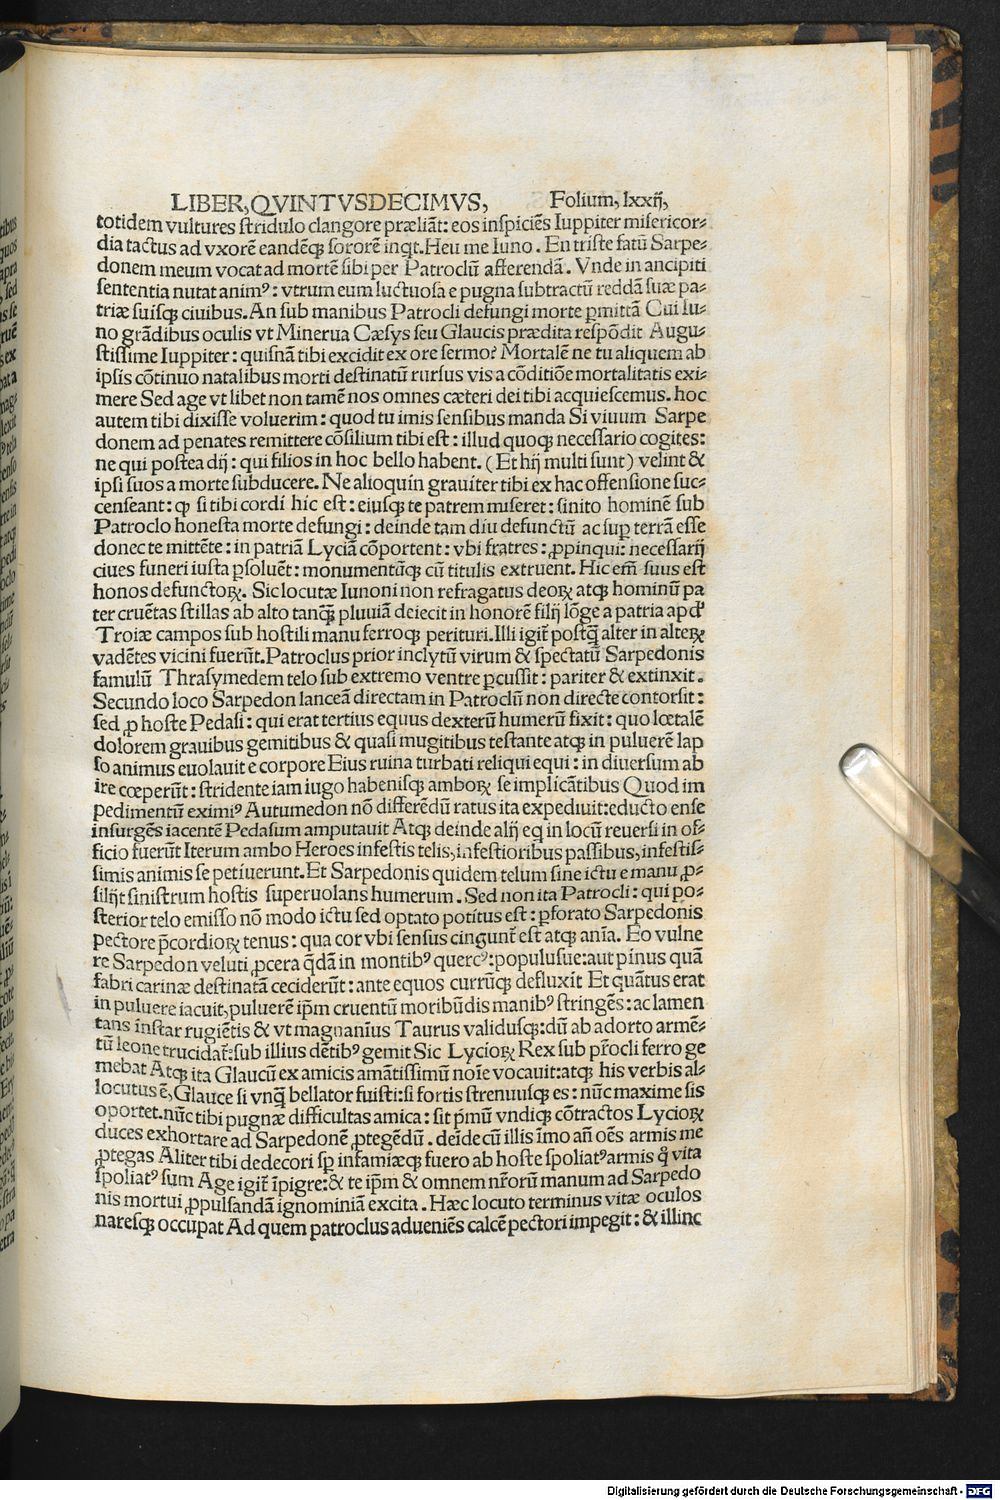 LIBER, QVINTVSDECIMVS, Folium, lxxij,
totidem vultures stridulo clangore præliāt: eos inspiciēs Iuppiter misericor⸗
dia tactus ad vxorē eandēqꝫ sororē inqt. Heu me Iuno. En triste fatū Sarpe⸗
donem meum vocat ad mortē sibi per Patroclū afferendā. Vnde in ancipiti
sententia nutat animꝰ: vtrum eum luctuosa e pugna subtractū reddā suæ pa⸗
triæ suisqꝫ ciuibus. An sub manibus Patrocli defungi morte ꝑmittā Cui Iu⸗
no grādibus oculis vt Minerua Cæsys seu Glaucis prædita respōdit Augu⸗
stissime Iuppiter: quisnā tibi excidit ex ore sermo? Mortalē ne tu aliquem ab
ipsis cōtinuo natalibus morti destinatū rursus vis a cōditiōe mortalitatis exi⸗
mere Sed age vt libet non tamē nos omnes cæteri dei tibi acquiescemus. hoc
autem tibi dixisse voluerim: quod tu imis sensibus manda Si viuum Sarpe
donem ad penates remittere cōsilium tibi est: illud quoqꝫ necessario cogites:
ne qui postea dij: qui filios in hoc bello habent. (Et hij multi sunt) velint &
ipsi suos a morte subducere. Ne alioquin grauiter tibi ex hac offensione suc⸗
censeant: ꝙ si tibi cordi hic est: eiusqꝫ te patrem miseret: sinito hominē sub
Patroclo honesta morte defungi: deinde tam diu defunctū ac suꝑ terrā esse
donec te mittēte: in patriā Lyciā cōportent: vbi fratres: ꝓpinqui: necessarij
ciues funeri iusta ꝑsoluēt: monumentūqꝫ cū titulis extruent. Hic em̄ suus est
honos defunctoꝝ. Sic locutæ Iunoni non refragatus deoꝝ atqꝫ hominū pa
ter cruētas stillas ab alto tanqꝫ̄ pluuiā deiecit in honorē filij lōge a patria apđ
Troiæ campos sub hostili manu ferroqꝫ perituri. Illi igit̄ postq̄ alter in alteꝝ
vadētes vicini fuerūt. Patroclus prior inclytū virum & spectatū Sarpedonis
famulū Thrasymedem telo sub extremo ventre ꝑcussit: pariter & extinxit.
Secundo loco Sarpedon lanceā directam in Patroclū non directe contorsit:
sed ꝓ hoste Pedasi: qui erat tertius equus dexterū humerū fixit: quo lœtalē
dolorem grauibus gemitibus & quasi mugitibus testante atqꝫ in puluerē lap
so animus euolauit e corpore Eius ruina turbati reliqui equi: in diuersum ab
ire cœperūt: stridente iam iugo habenisqꝫ amboꝝ se implicātibus Quod im
pedimentū eximiꝰ Autumedon nō differēdū ratus ita expediuit: educto ense
insurgēs iacentē Pedasum amputauit Atqꝫ deinde alij eq in locū reuersi in of⸗
ficio fuerūt Iterum ambo Heroes infestis telis, infestioribus passibus, infestis⸗
simis animis se petiuerunt. Et Sarpedonis quidem telum sine ictu e manu ꝓ⸗
silijt sinistrum hostis superuolans humerum. Sed non ita Patrocli: qui po⸗
sterior telo emisso nō modo ictu sed optato potitus est: ꝑforato Sarpedonis
pectore p̄cordioꝝ tenus: qua cor vbi sensus cingunt̄ est atqꝫ aīa. Eo vulne
re Sarpedon veluti ꝓcera q̄dā in montibꝰ quercꝰ: populusue: aut pinus quā
fabri carinæ destinatā ceciderūt: ante equos currūqꝫ defluxit Et quātus erat
in puluere iacuit, puluerē ip̄m cruentū moribūdis manibꝰ stringēs: ac lamen
tans instar rugiētis & vt magnanīus Taurus validusqꝫ: dū ab adorto armē⸗
tū leone trucidat̄: sub illius dētibꝰ gemit Sic Lycioꝝ Rex sub pr̄ocli ferro ge
mebat Atqꝫ ita Glaucū ex amicis amātissimū noīe vocauit: atqꝫ his verbis al⸗
locutus ē, Glauce si vnq̄ bellator fuisti: si fortis strenuusqꝫ es: nūc maxime sis
oportet. nūc tibi pugnæ difficultas amica: sit p̄mū vndiqꝫ cōtractos Lycioꝝ
duces exhortare ad Sarpedonē ꝓtegēdū. deīde cū illis īmo añ oēs armis me
ꝓtegas Aliter tibi dedecori sꝑ infamiæqꝫ fuero ab hoste spoliatꝰ armis q̄ vita
spoliatꝰ sum Age igit̄ īpigre: & te ip̄m & omnem nr̄orū manum ad Sarpedo
nis mortui ꝓpulsandā ignominiā excita. Hæc locuto terminus vitæ oculos
naresqꝫ occupat Ad quem patroclus adueniēs calcē pectori impegit: & illinc
Digitalisierung gefördert durch die Deutsche Forschungsgemeinschaft - DFG